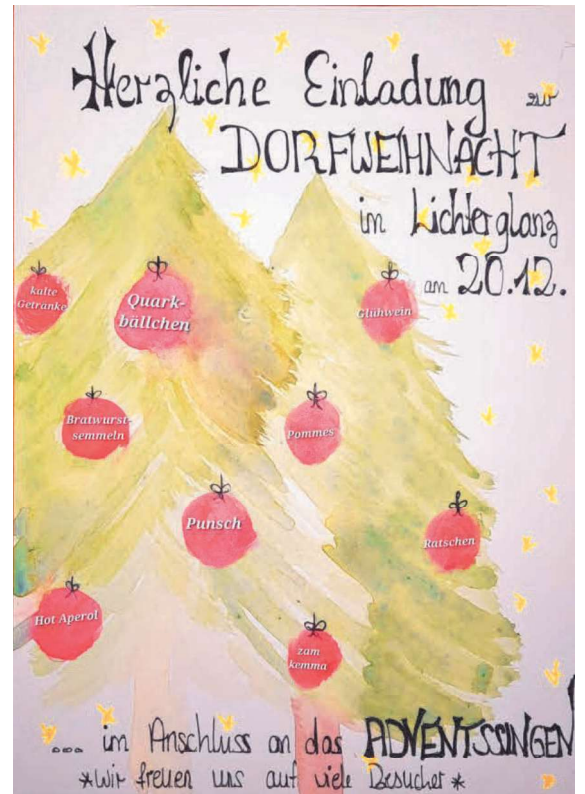 Herzliche Einladung zur
DORFWEIHNACHT
im Lichterglanz
am 20.12.
kalte
Getränke
Quark-
bällchen
Glühwein
Bratwurst-
semmeln
Pommes
Punsch
Ratschen
Hot Aperol
zam
kemma
... im Anschluss an das ADVENTSSINGEN
*wir freuen uns auf viele Besucher*